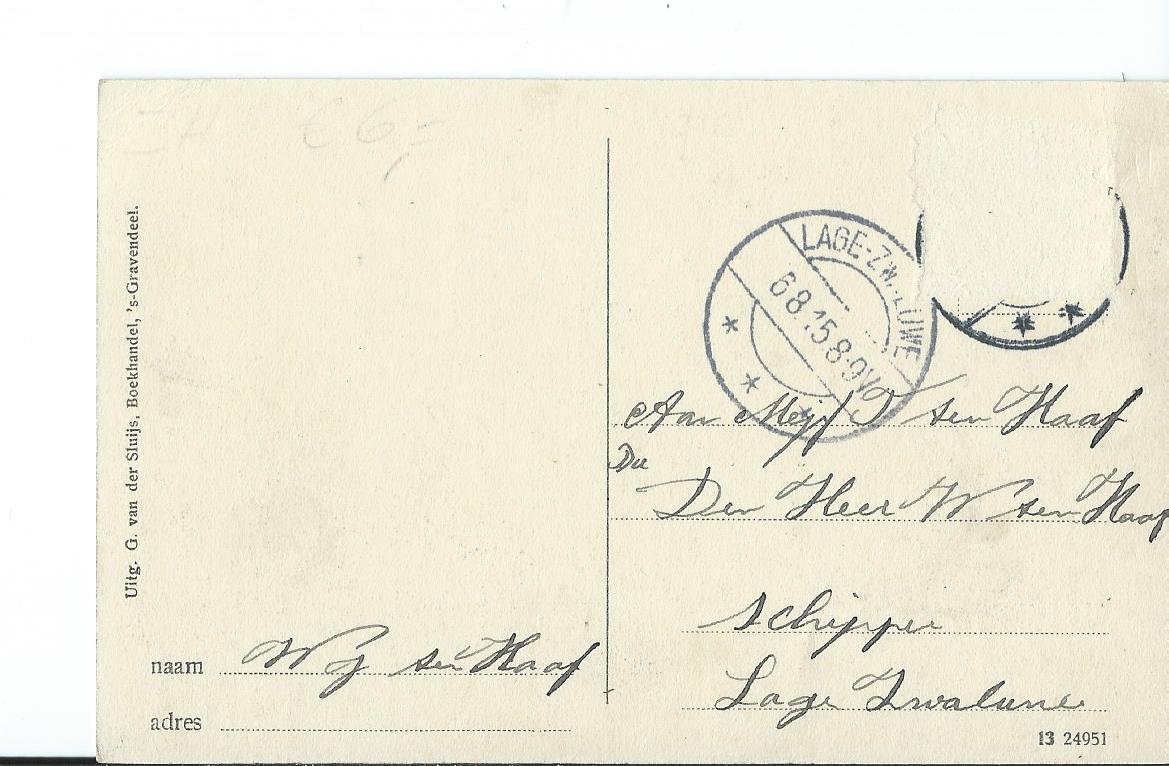 € 6,-
Uitg. G. van der Sluijs, Boekhandel, 's-Gravendeel.
LAGE-ZW.LUWE
6 8.15 8-9V
Aan Mejf J ten Haaf
Den Heer W ten Haaf
schipper
Lage Zwaluwe
naam W J ten Haaf
adres
13 24951